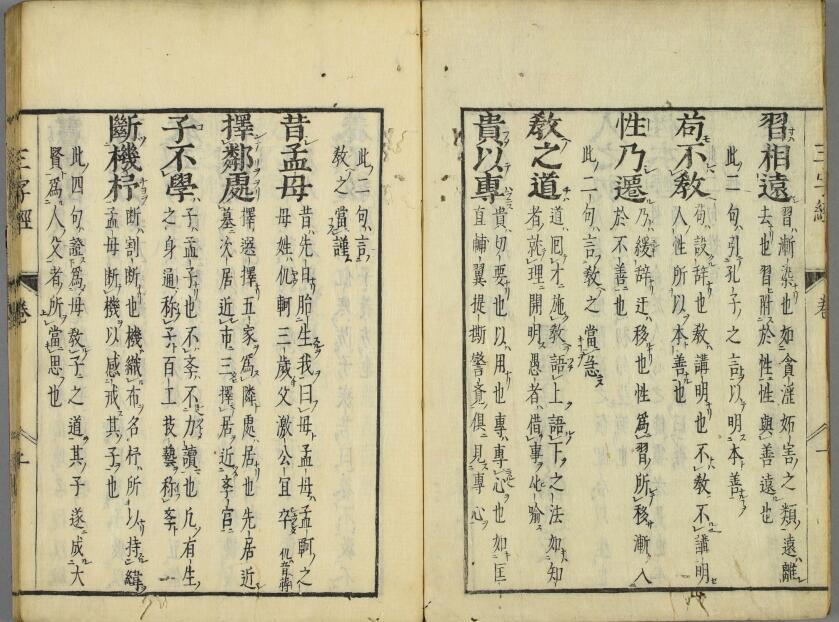 習相遠習漸染也如貪淫妬害之類遠離
去也習附於性性與善遠也
此二句引孔子之言以明本善
苟不教苟設辞也教講明也不教不講明
人性所以本善也
性乃遷乃緩辞迁移也性為習所移漸入
於不善也
此二句言教之當急
教之道道囘才施教語上語下之法如知
者就理開明愚者借事化喻
貴以專貴切要也以用也專專心也如匡
直輔翼提撕警覺俱見專心
此二句言
教之當謹
昔孟母昔先日胎生我曰母孟母孟軻之
母姓仉軻三歲父激公冝卒仉音掌
擇鄰處擇選擇五家為隣處居也先居近
墓次居近市三擇居近斈宮
子不學子孟子也不斈不力讀也凢有生
之身通称子百工技藝称斈
斷機杼断割断也機織布名杼所以持緯
孟母断機以感戒其子也
此四句證為母教子之道其子遂成大
賢為人父者所當思也
三字經
卷